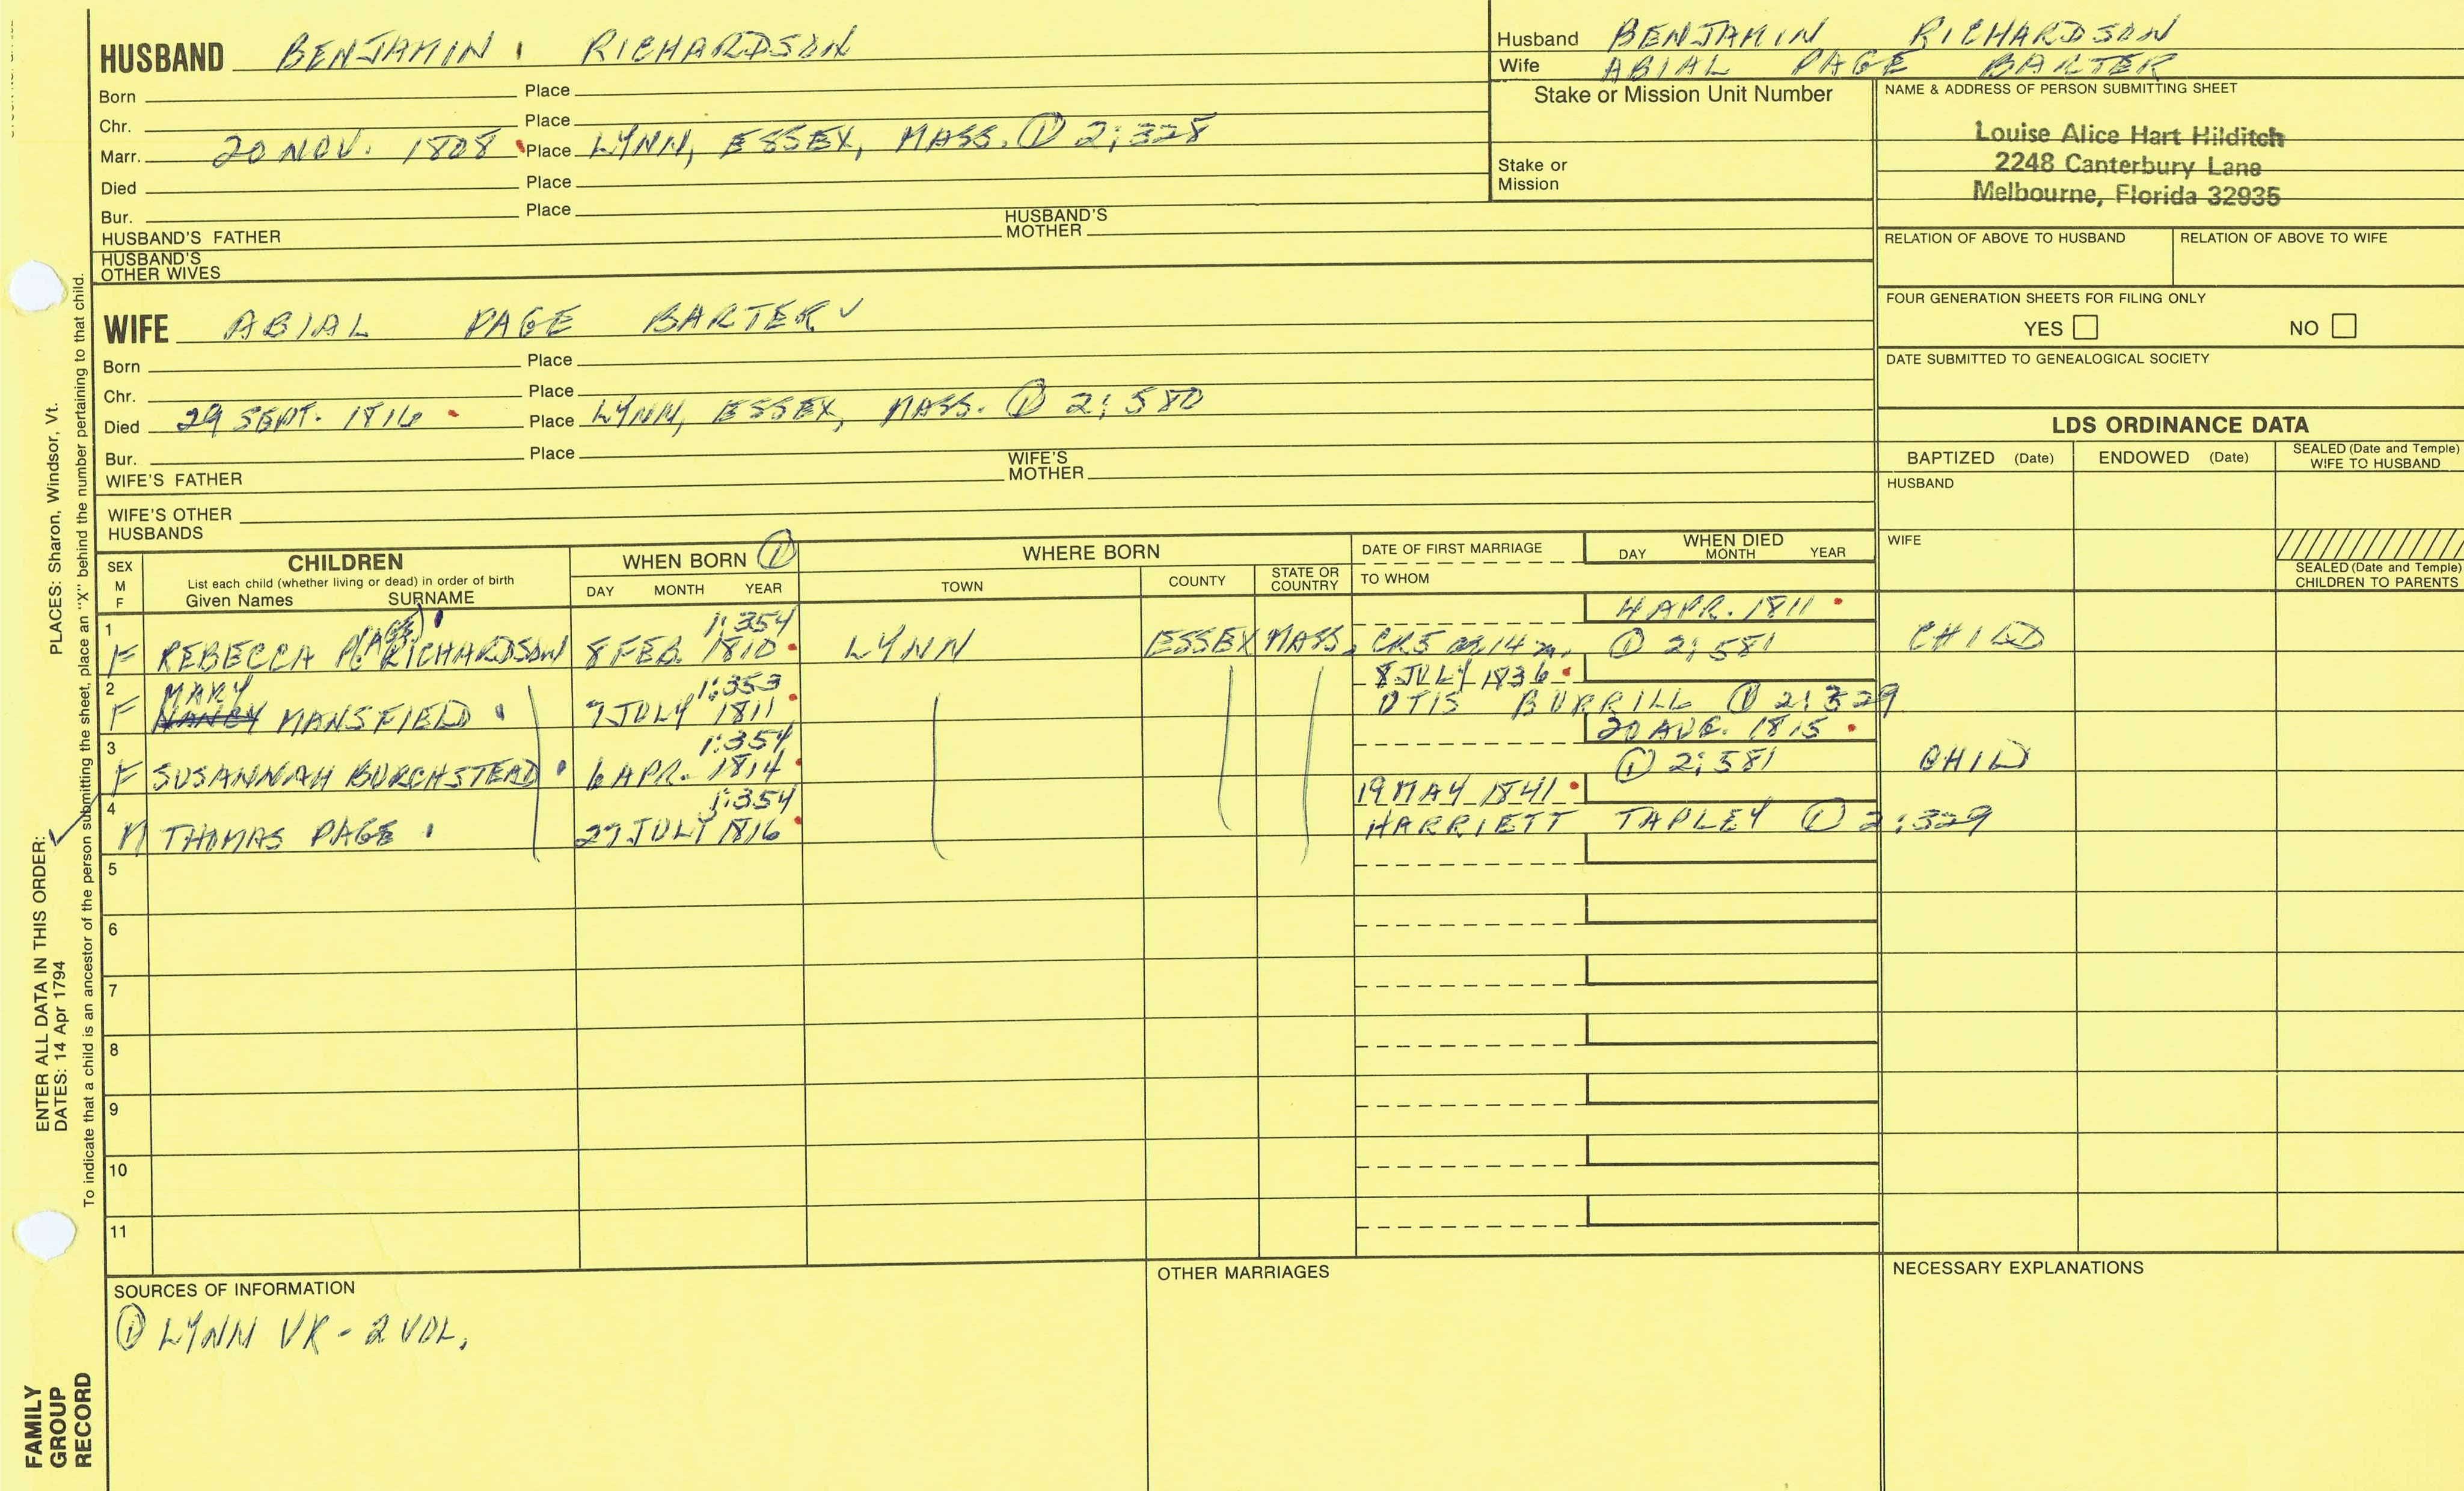 HUSBAND BENJAMIN RICHARDSON
Born Place
Chr. Place
Marr. 20 NOV. 1808 Place LYNN, ESSEX, MASS. ① 2:328
Died Place
Bur. Place
HUSBAND'S FATHER HUSBAND'S MOTHER
HUSBAND'S OTHER WIVES
Husband BENJAMIN RICHARDSON
Wife ABIAL PAGE BARTER
Stake or Mission Unit Number
Stake or Mission
NAME & ADDRESS OF PERSON SUBMITTING SHEET
Louise Alice Hart Hilditch
2248 Canterbury Lane
Melbourne, Florida 32935
RELATION OF ABOVE TO HUSBAND RELATION OF ABOVE TO WIFE
FOUR GENERATION SHEETS FOR FILING ONLY
YES NO
DATE SUBMITTED TO GENEALOGICAL SOCIETY
WIFE ABIAL PAGE BARTER ✓
Born Place
Chr. Place
Died 29 SEPT. 1816 Place LYNN, ESSEX, MASS. ① 2:580
Bur. Place
WIFE'S FATHER WIFE'S MOTHER
WIFE'S OTHER HUSBANDS
LDS ORDINANCE DATA
BAPTIZED (Date) ENDOWED (Date) SEALED (Date and Temple) WIFE TO HUSBAND
HUSBAND
WIFE
SEALED (Date and Temple) CHILDREN TO PARENTS
SEX M F
CHILDREN
List each child (whether living or dead) in order of birth
Given Names SURNAME
WHEN BORN ①
DAY MONTH YEAR
WHERE BORN
TOWN COUNTY STATE OR COUNTRY
DATE OF FIRST MARRIAGE
TO WHOM
WHEN DIED
DAY MONTH YEAR
1 (PAGE) 1:354 4 APR. 1811
F REBECCA P. RICHARDSON 8 FEB. 1810 LYNN ESSEX MASS. CR5 14 m. ① 2:581 CHILD
2 MARY 1:353 8 JULY 1836
F NANCY MANSFIELD 7 JULY 1811 OTIS BURRILL ① 2:329
3 1:354 20 AUG. 1815
F SUSANNAH BURCHSTEAD 6 APR. 1814 ① 2:581 CHILD
4 1:354 19 MAY 1841
M THOMAS PAGE 27 JULY 1816 HARRIETT TAPLEY ① 2:329
5
6
7
8
9
10
11
SOURCES OF INFORMATION
① LYNN VR - 2 VOL.
OTHER MARRIAGES
NECESSARY EXPLANATIONS
ENTER ALL DATA IN THIS ORDER:
DATES: 14 Apr 1794
PLACES: Sharon, Windsor, Vt.
To indicate that a child is an ancestor of the person submitting the sheet, place an "X" behind the number pertaining to that child.
FAMILY
GROUP
RECORD